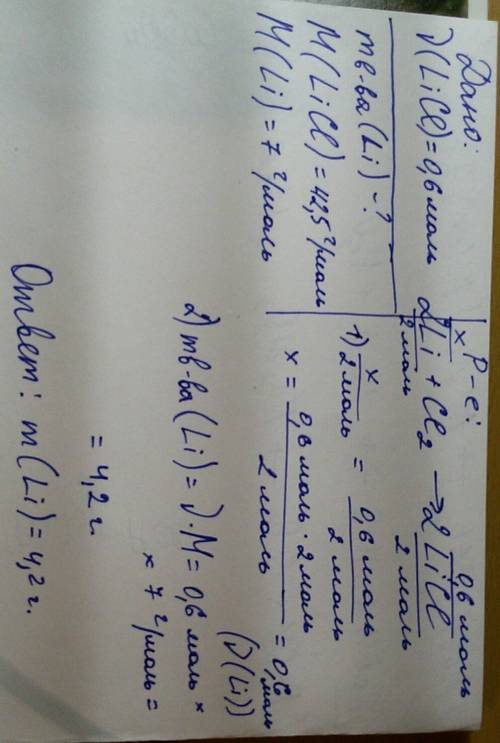 Дано:
ν(LiCl) = 0,6 моль
mв-ва(Li) - ?
M(LiCl) = 42,5 г/моль
M(Li) = 7 г/моль
Р-е:
x 0,6 моль
2Li + Cl₂ → 2LiCl
2 моль 2 моль
1) x/2 моль = 0,6 моль/2 моль
x = 0,6 моль · 2 моль/2 моль = 0,6 моль
(ν(Li))
2) mв-ва(Li) = ν·M = 0,6 моль ×
× 7 г/моль =
= 4,2 г.
Ответ: m(Li) = 4,2 г.